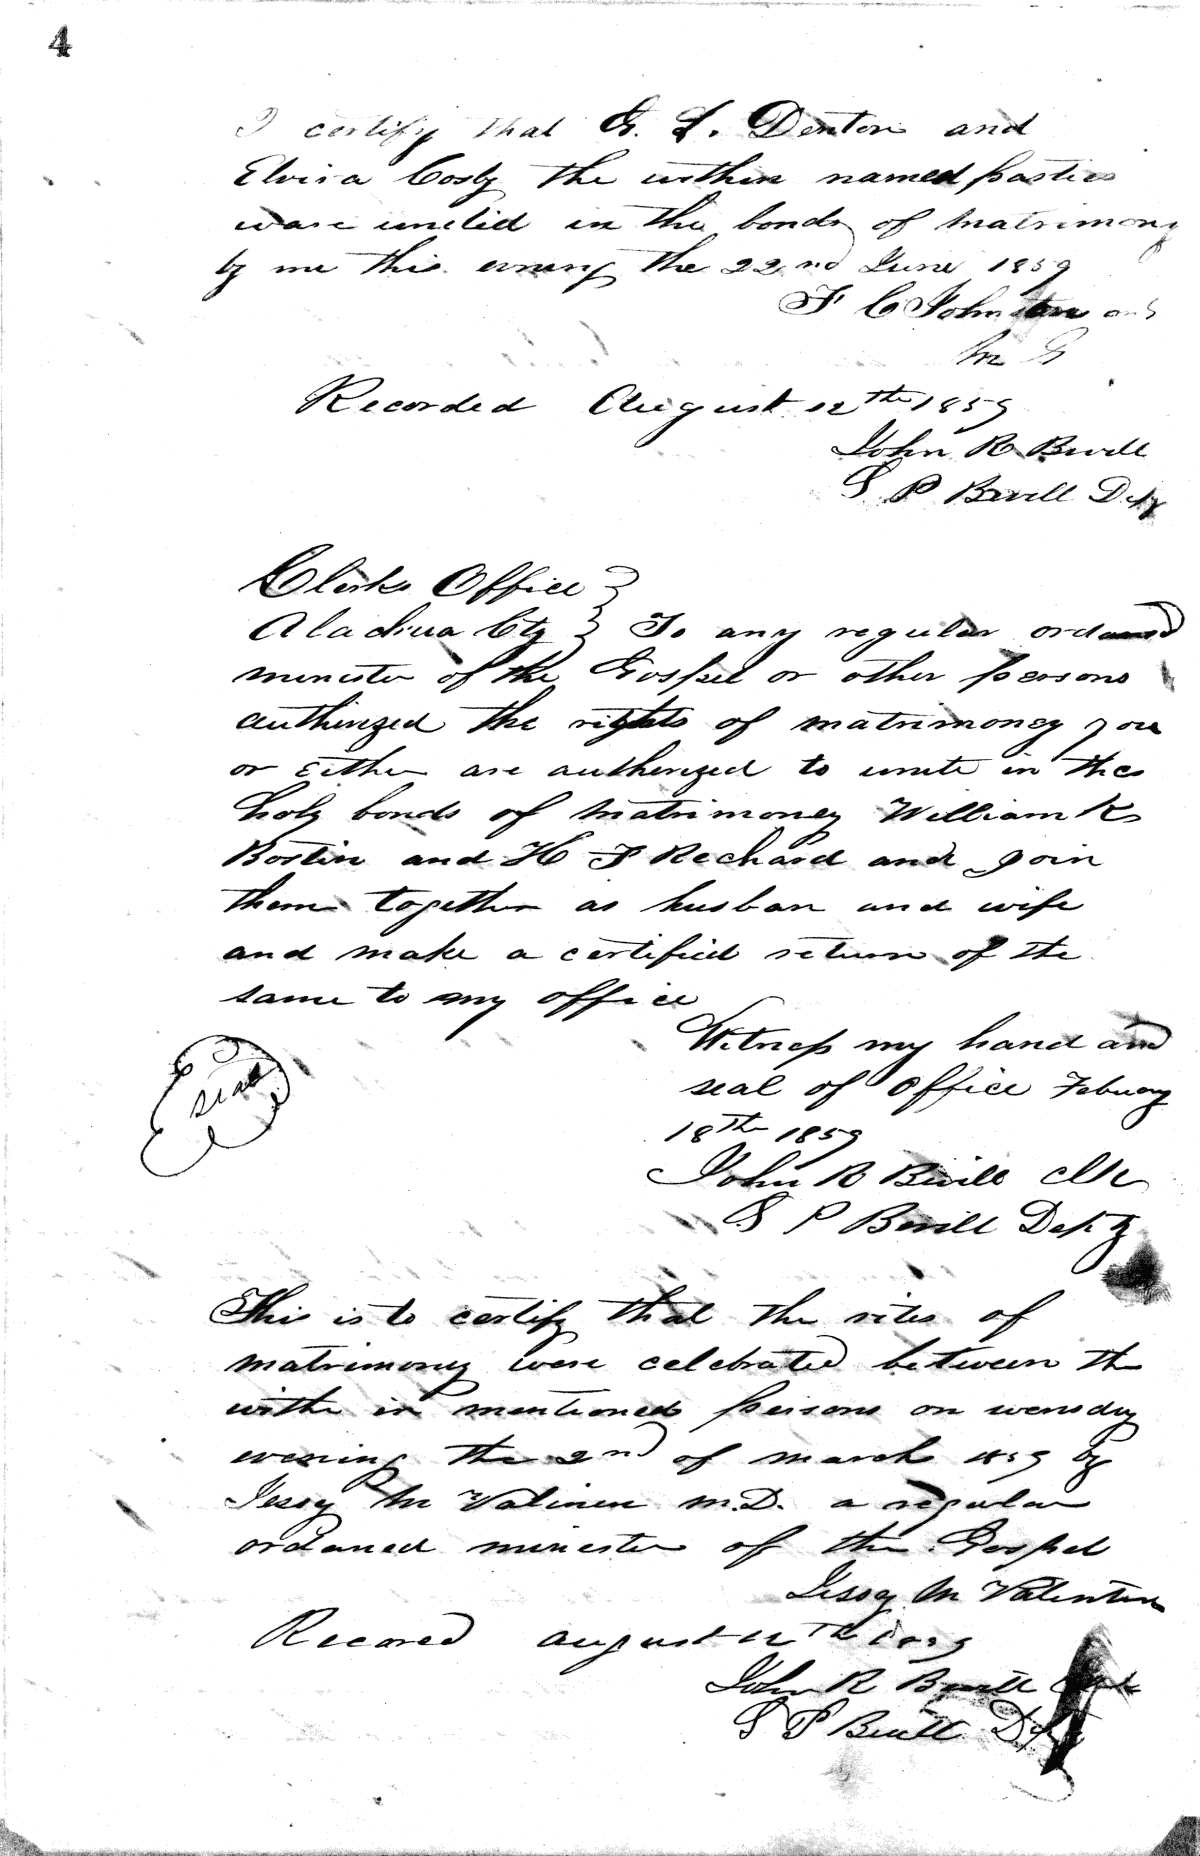 4
I certify that G. L. Denton and
Elvira Cosby the within named parties
ware unitid in the bonds of matrimony
by me this evning the 22nd June 1859
F C Johnston
M G
Recorded August 12th 1859
John R Bevill
S P Bevill Dety
Clerks Office
Alachua Cty } To any regular ordaned
minister of the Gospel or other persons
authorized the rights of matrimoney you
or Either are authorized to unite in the
holy bonds of matrimoney William R
Bostin and H F Rechard and Join
them together as husban and wife
and make a certified return of the
same to my office
Witness my hand and
seal of office Febuary
seal
18th 1859
John R Bevill Clk
S P Bevill Depty
This is to certify that the rites of
matrimoney were celebrated between the
with in mentioned persons on wensday
evening the 2nd of march 1859 by
Jessy M M.D. a regular
ordaned minister of the Gospel
Jessy M Valentine
Recored august 12th 1859
John R Bevill Clk
S P Bevill Dpty